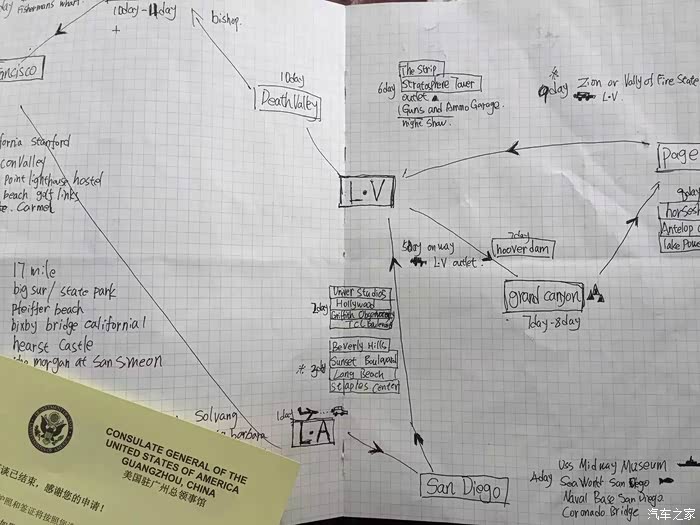 day Fishermans wharf.
10day-11day
+
bishop.
ancisco
10day
Death Valley
ifornia Stanford
icon Valley
Point lighthouse hostel
beach golf links
te. Carmel
17 mile
big sur / state park
Pfeiffer beach
bixby bridge californial
hearst Castle
morgan at San Simeon
Solvang
barbara
6day
The Strip
Stratosphere Tower
outlet
(Guns and Ammo Garage.
night Show.
9day
Zion or Vally of Fire State
L.V.
L.V
Page
9day
horsesh
Antelop c
Lake Powe
5day on way
L.V outlet.
7day
hoover dam
grand canyon
7day-8day
2day
Univer Studios
Hollywood
Griffith Observatory
TCL Boulevard
* 3day
Beverly Hills
Sunset Boulevard
Long Beach
Staples Center
1day
L.A
San Diego
4day
Uss Midway Museum
Sea World San Diego
Naval Base San Diego
Coronado Bridge
CONSULATE GENERAL OF THE
UNITED STATES OF AMERICA
GUANGZHOU, CHINA
美国驻广州总领事馆
谈已结束，感谢您的申请！
护照和签证将按照您
汽车之家